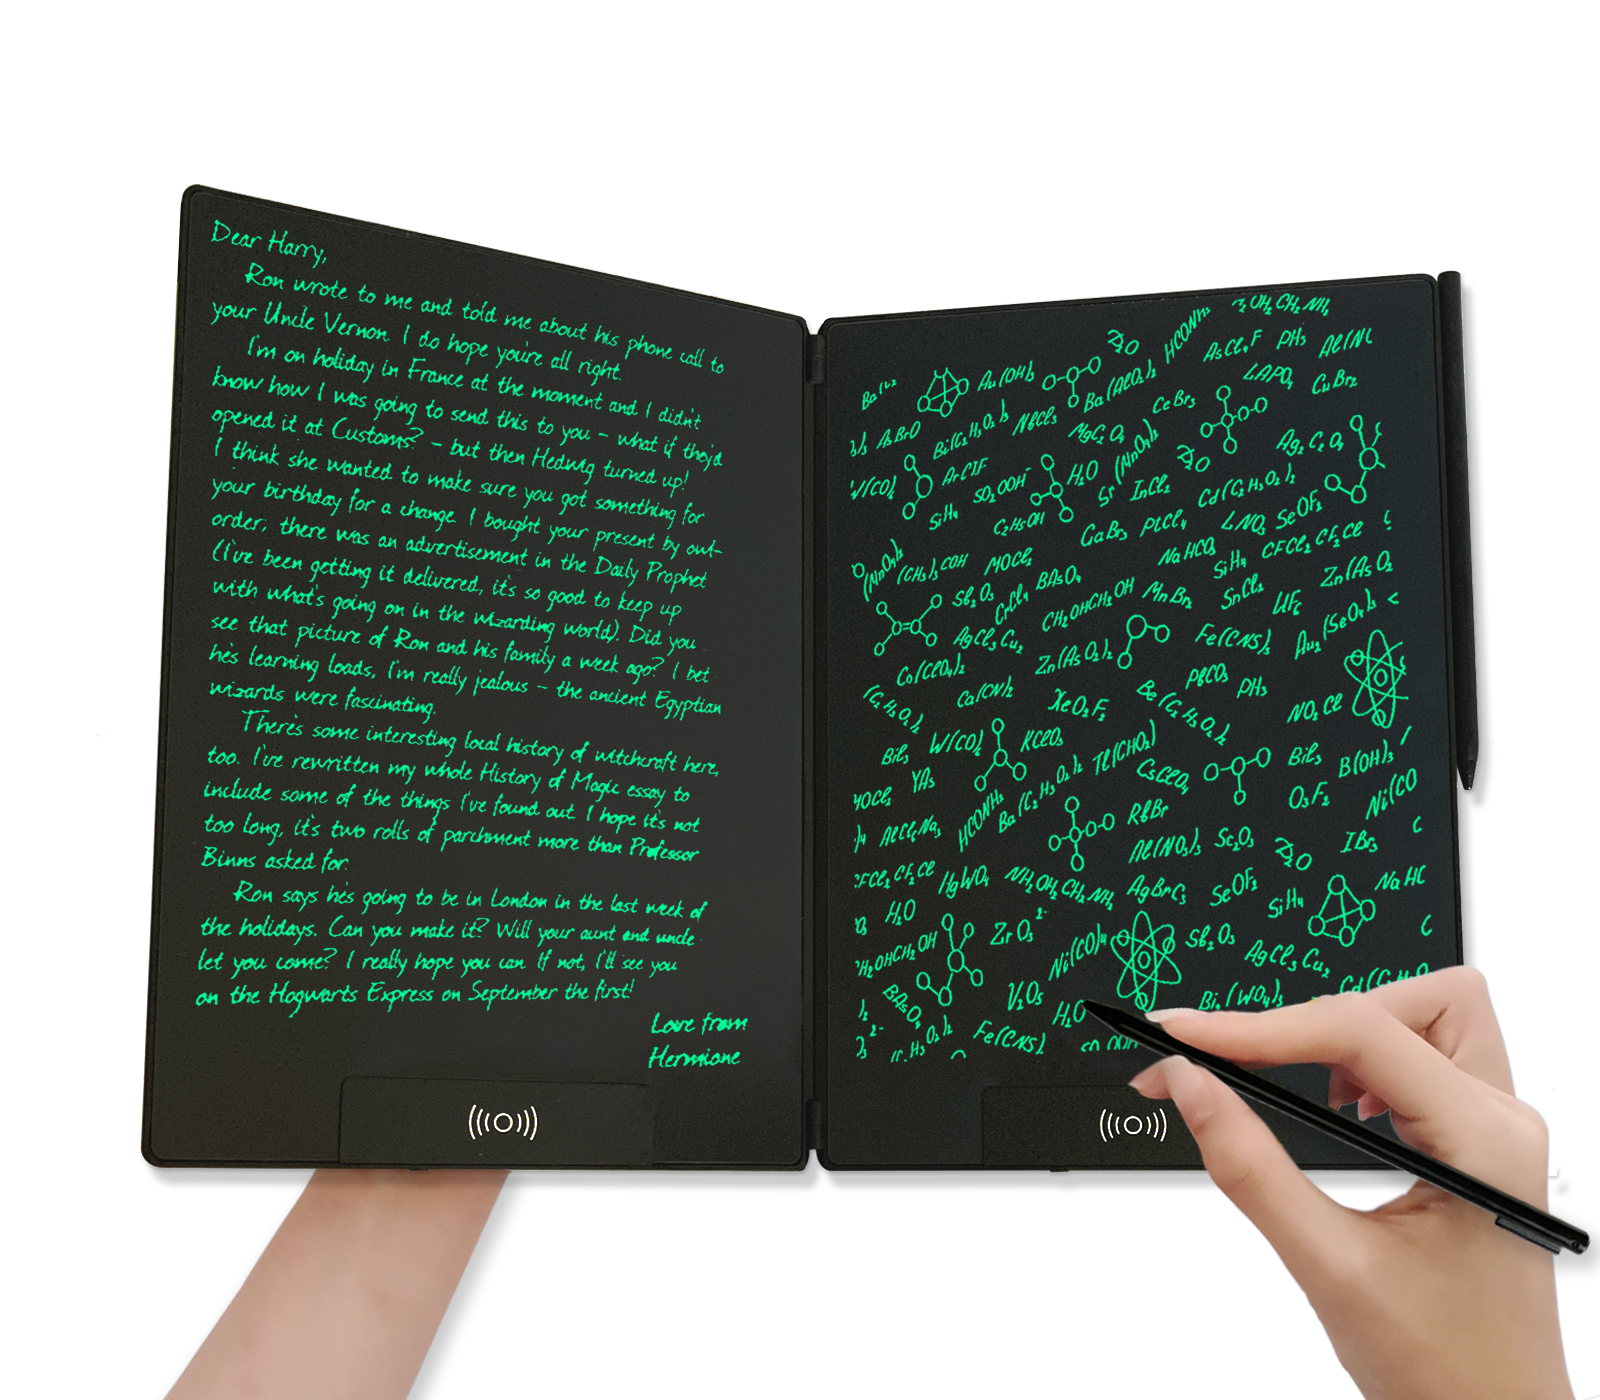 Dear Harry,
Ron wrote to me and told me about his phone call to
your Uncle Vernon. I do hope you're all right.
I'm on holiday in France at the moment and I didn't
know how I was going to send this to you – what if they'd
opened it at Customs? – but then Hedwig turned up!
I think she wanted to make sure you got something for
your birthday for a change. I bought your present by owl-
order; there was an advertisement in the Daily Prophet
(I've been getting it delivered, it's so good to keep up
with what's going on in the wizarding world). Did you
see that picture of Ron and his family a week ago? I bet
he's learning loads, I'm really jealous – the ancient Egyptian
wizards were fascinating.
There's some interesting local history of witchcraft here,
too. I've rewritten my whole History of Magic essay to
include some of the things I've found out. I hope it's not
too long, it's two rolls of parchment more than Professor
Binns asked for.
Ron says he's going to be in London in the last week of
the holidays. Can you make it? Will your aunt and uncle
let you come? I really hope you can. If not, I'll see you
on the Hogwarts Express on September the first!
Love from
Hermione
HCONH₂
AsCl₄F PH₃
Au(OH)₃
Ba(AlO₂)₂ LAPO₄ CuBr₂
AsBrO Bi(C₂H₃O₂)₃ NbCl₃ CeBr₃
MgC₂O₄ Ag₂C₂O₄
W(CO)₆ ArClF H₂O (MnO₄)₂
SO₂OOH⁻ Sr InCl₂ Cd(C₂H₃O₂)₂
SiH₄ C₂H₅OH GaBr₃ PtCl₄ LNO₃ SeOF₂
(MnO₄)₂ (CH₃)₃COH MOCl₂ NaHCO₃ SiH₄ CFCl₂CF₂Cl
Sb₂O₃ CrCl₄ BAsO₄ CH₂OHCH₂OH MnBr₂ SnCl₂ UF₆ Zn(AsO₂
AgCl₃Cu₂ Fe(CNS)₃ Au₂(SeO₄)₃
Co(ClO₄)₂ Zn(AsO₂)₂ PbCO₃ PH₃
(C₂H₃O₂)₂ Ca(CN)₂ XeO₂F₂ Be(C₂H₃O₂)₂ NO₂Cl
BiI₃ W(CO)₆ KClO₃ Tl(CHO₂) BiI₃ B(OH)₃
YAs CsClO₄ O₃F₂ Ni(CO
YOCl₂ HCONH₂ Ba(C₂H₃O₂)₂ RbBr
AlCl₆Na₃ Al(NO₃)₃ Sc₂O₃ IBr₃
FCl₂CF₂Cl HgWO₄ NH₂OH₂CH₂NH₂ AgBrO₃ SeOF₂ SiH₄ NaHC
H₂O ZrO₃²⁻ Sb₂O₃ AgCl₃Cu₂
H₂OHCH₂OH Ni(CO)₄
BAsO₄ V₂O₅ H₂O Bi₂(WO₄)₃
Fe(CNS)₃